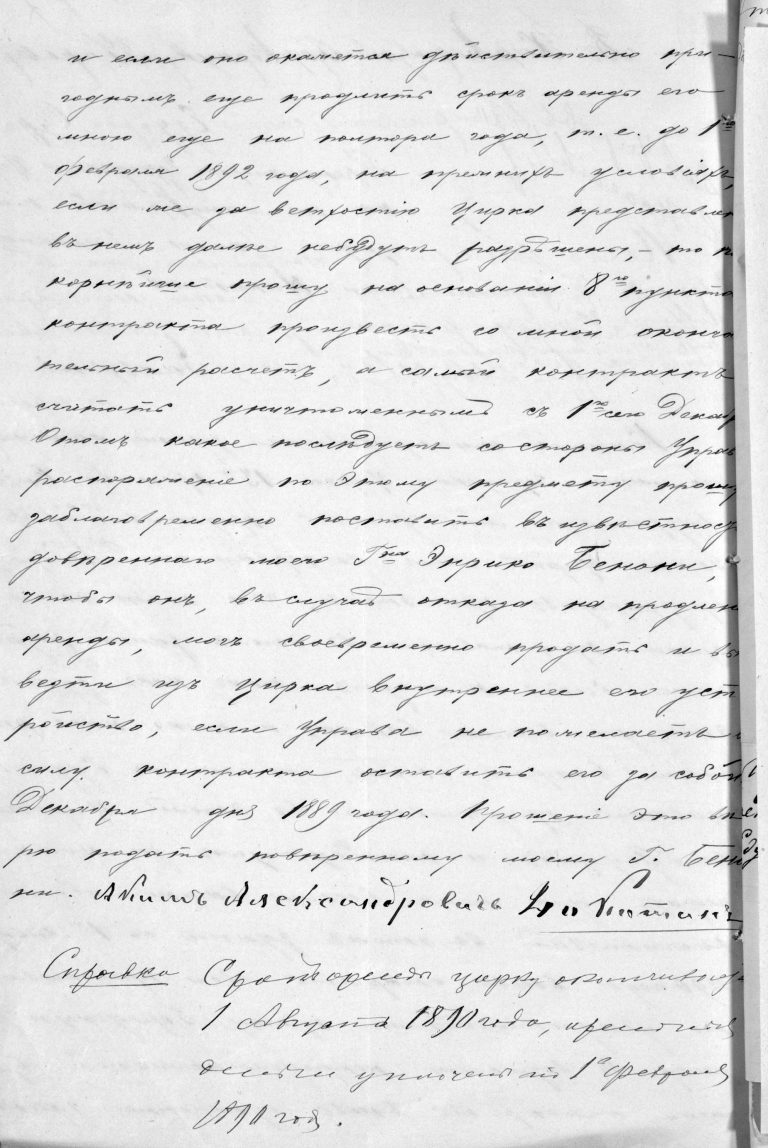 и если оно окажется дѣйствительно при-
годнымъ еще продлить срокъ аренды его
мною еще на полтора года, т. е. до 1го
февраля 1892 года, на прежнихъ условіяхъ,
если же за ветхостію цирка представле
въ немъ далѣе небудутъ разрѣшены, – то по
корнѣйше прошу на основаніи 8го пункта
контракта произвесть со мной оконча
тельный расчетъ, а самый контрактъ
считать уничтоженнымъ съ 1го сего Декаб
Отомъ какое послѣдуетъ со стороны Управ
распоряженіе по этому предмету прошу
заблаговременно поставить въ извѣстнос
довѣреннаго моего Гна Энрико Бенони,
чтобы онъ, въ случаѣ отказа на продлен
аренды, могъ своевременно продать и вы
везти изъ цирка внутреннее его уст
ройство, если Управа не пожелаетъ
силу контракта оставить его за собой
Декабря дня 1889 года. Прошеніе это вѣ
рю подать повѣренному моему Г. Бено
ни. Акимъ Александровичъ
Справка Срокъ аренды цирку
1 Августа 1890 года, арендныя
деньги уплочены по 1е Февраля
1890 года.